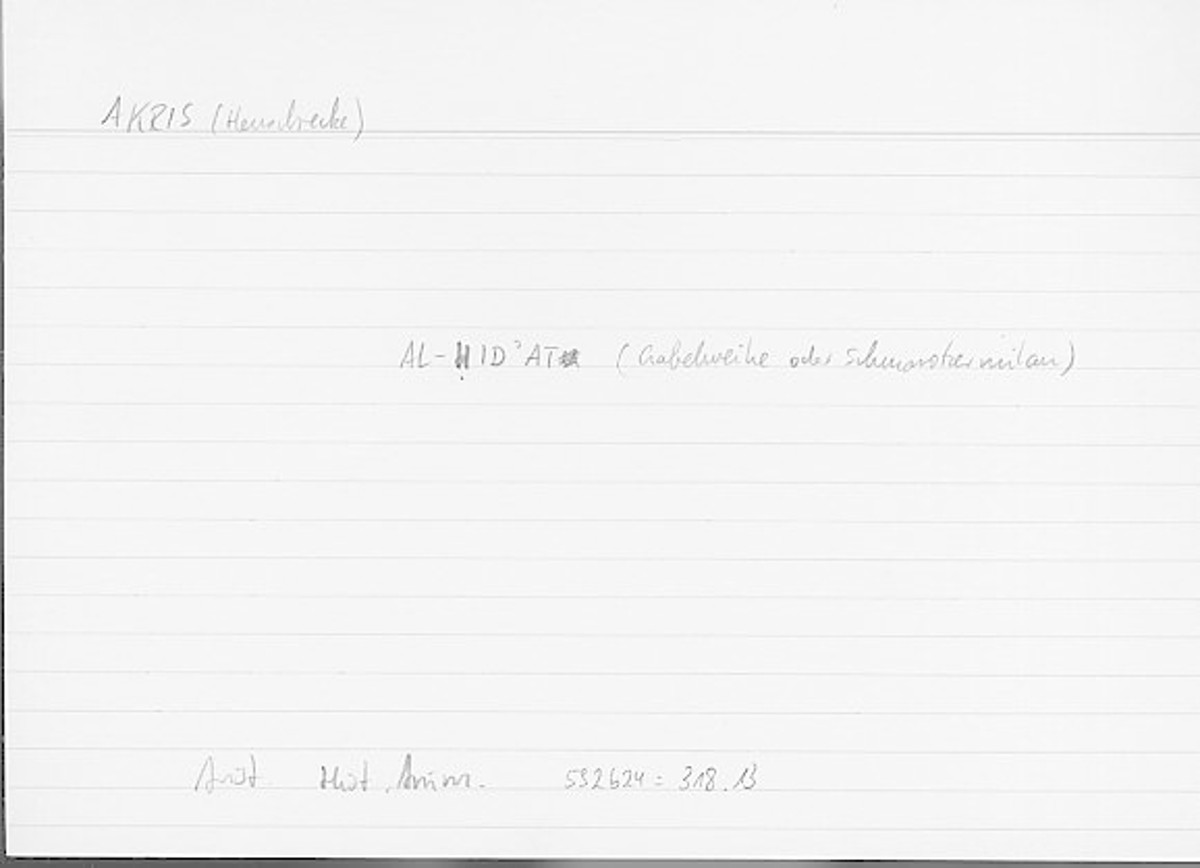 AKRIS (Heuschrecke)
AL-ḤID᾿AT (Gabelweihe oder Schmarotzermilan)
Arist. Hist. Anim. 592b24 = 318.13